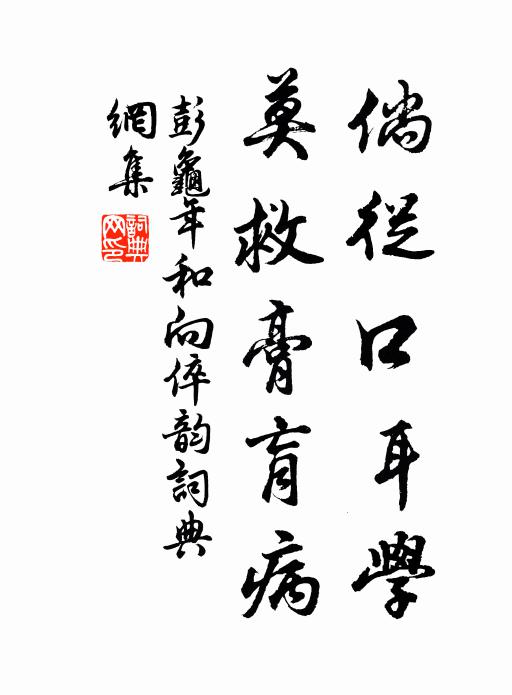 倘從口耳學
莫救膏肓病
彭龜年和向倅韵詞典
網集
詞典
网印